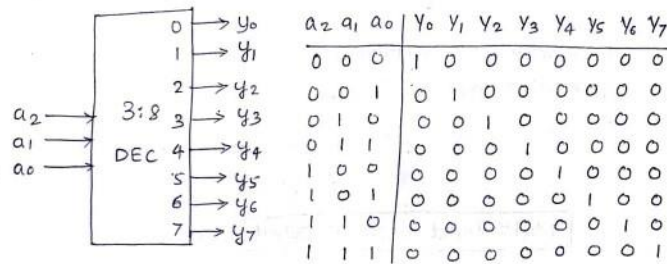 0 → y0
1 → y1
2 → y2
a2 → 3:8 3 → y3
a1 → DEC 4 → y4
a0 → 5 → y5
6 → y6
7 → y7
a2 a1 a0 Y0 Y1 Y2 Y3 Y4 Y5 Y6 Y7
0 0 0 1 0 0 0 0 0 0 0
0 0 1 0 1 0 0 0 0 0 0
0 1 0 0 0 1 0 0 0 0 0
0 1 1 0 0 0 1 0 0 0 0
1 0 0 0 0 0 0 1 0 0 0
1 0 1 0 0 0 0 0 1 0 0
1 1 0 0 0 0 0 0 0 1 0
1 1 1 0 0 0 0 0 0 0 1